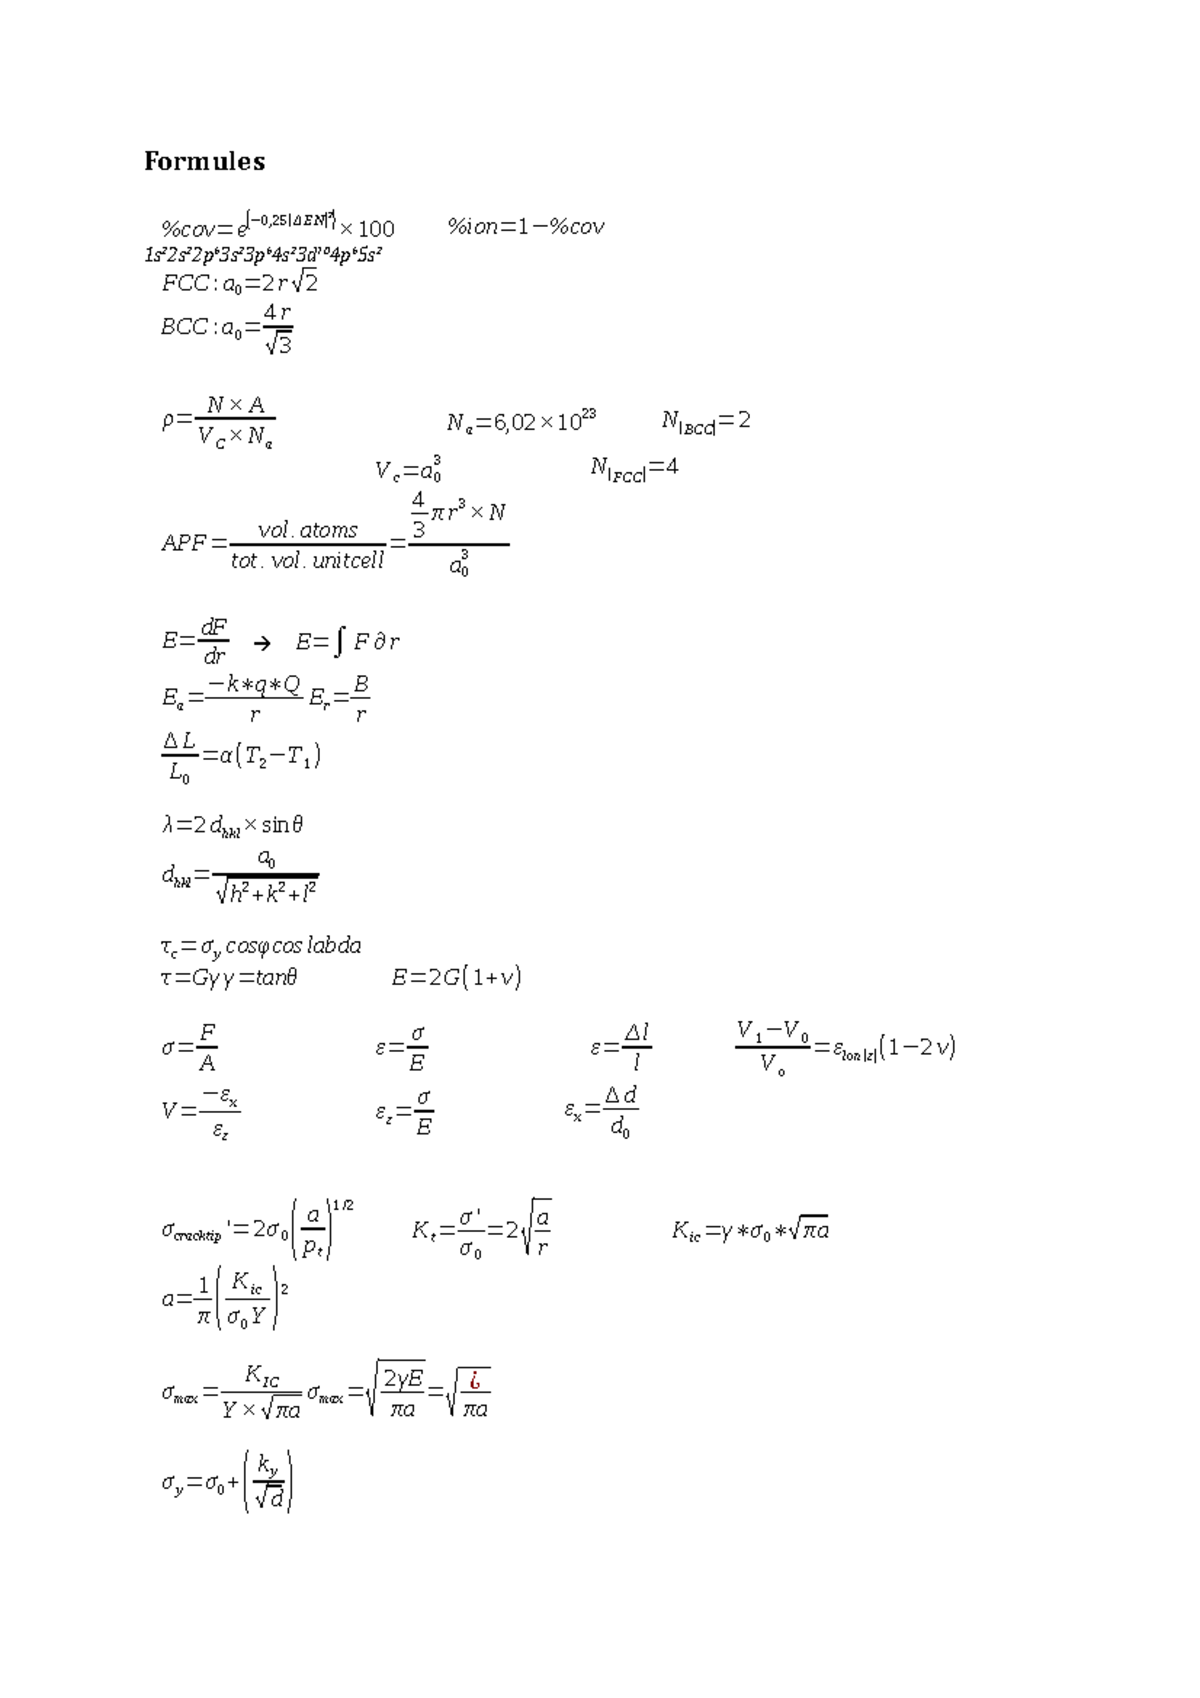 Formules
%cov=e^(−0,25|ΔEN|²)×100 %ion=1−%cov
1s²2s²2p⁶3s²3p⁶4s²3d¹⁰4p⁶5s²
FCC:a₀=2r√2
BCC:a₀=4r/√3
ρ=(N×A)/(V_C×N_a) N_a=6,02×10²³ N|BCC|=2
V_c=a₀³ N|FCC|=4
APF=vol.atoms/tot.vol.unitcell=(4/3 πr³×N)/a₀³
E=dF/dr → E=∫F∂r
E_a=(−k∗q∗Q)/r E_r=B/r
ΔL/L₀=α(T₂−T₁)
λ=2d_hkl×sinθ
d_hkl=a₀/√(h²+k²+l²)
τ_c=σ_y cosφcoslabda
τ=Gγγ=tanθ E=2G(1+v)
σ=F/A ε=σ/E ε=Δl/l (V₁−V₀)/V_o=ε_lon|z|(1−2v)
V=−ε_x/ε_z ε_z=σ/E ε_x=Δd/d₀
σ_cracktip'=2σ₀(a/p_t)^1/2 K_t=σ'/σ₀=2√(a/r) K_ic=γ∗σ₀∗√πa
a=1/π(K_ic/(σ₀Y))²
σ_max=K_IC/(Y×√πa) σ_max=√(2γE/πa)=√(¿/πa)
σ_y=σ₀+(k_y/√d)